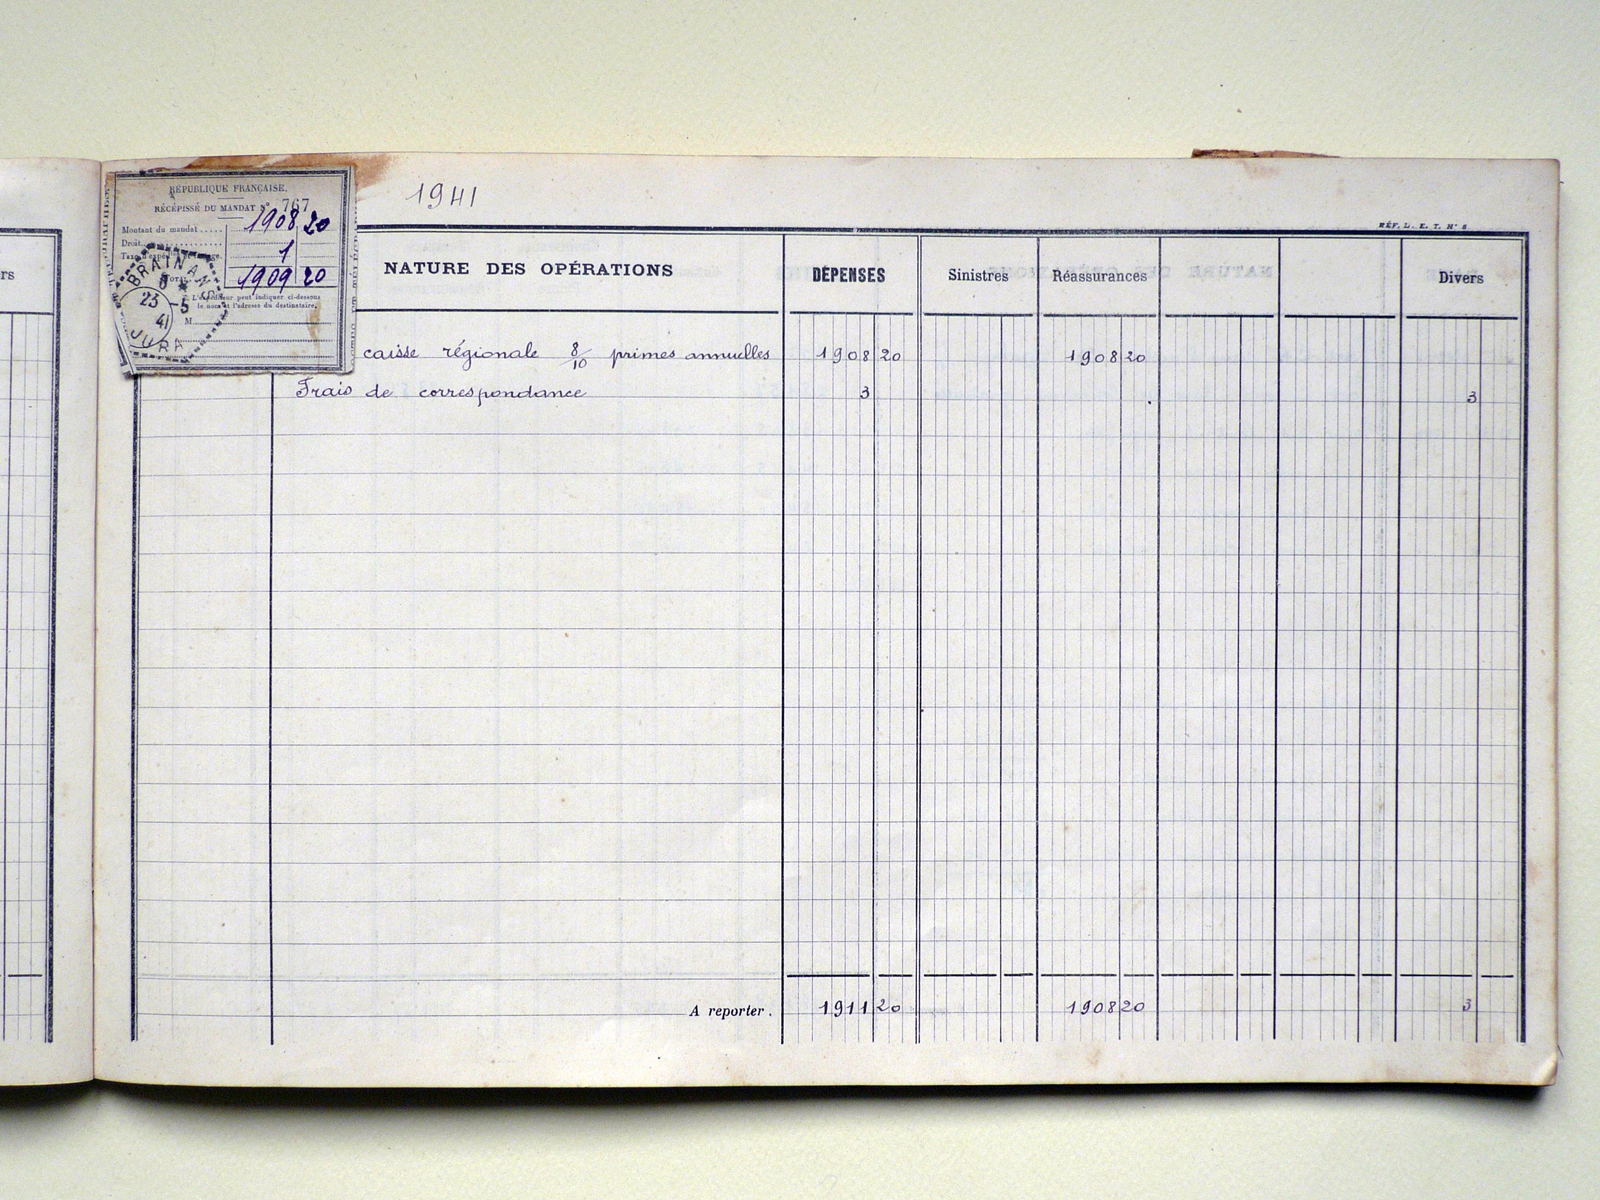 rs
RÉPUBLIQUE FRANÇAISE.
RÉCÉPISSÉ DU MANDAT N° 767
Montant du mandat ..... 1908 20
Droit 1
1909 20
L'expéditeur peut indiquer ci-dessous
le nom et l'adresse du destinataire.
M
BRAINANS
23 -5
41
JURA
1941
RÉF. L. E. T. N° 8
NATURE DES OPÉRATIONS DÉPENSES Sinistres Réassurances Divers
caisse régionale 8/10 primes annuelles 1908 20 1908 20
Frais de correspondance 3 3
A reporter. 1911 20 1908 20 3